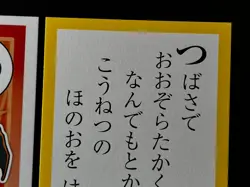 つばさで
おおぞらたかく
なんでもとか
こうねつの
ほのおを